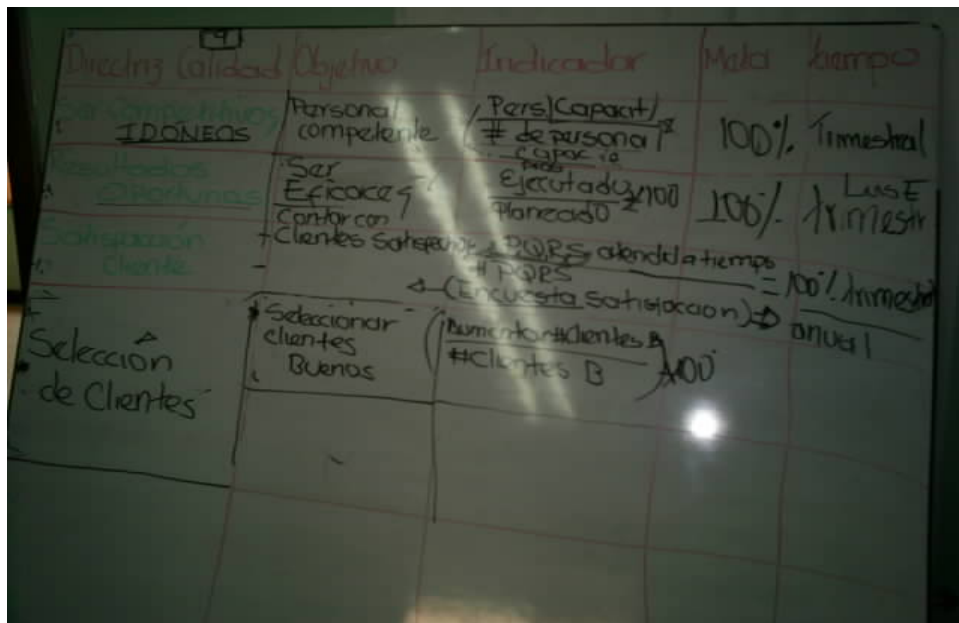 9
Directriz Calidad Objetivo Indicador Meta tiempo
Ser Competitivos
IDÓNEOS
Personal
competente
Pers/Capacit/
# de personal
100% Trimestral
Resultados
Oportunos
Ser
Eficaces
Ejecutado x100
Planeado
100% Trimestr
Satisfacción
Cliente
Contar con
Clientes Satisfechos
PQRS atendid a tiempo
# PQRS
= 100% trimestral
(Encuesta Satisfaccion) anual
Selección
de Clientes
Seleccionar
clientes
Buenos
Aumentar #Clientes B
#Clientes B
x100